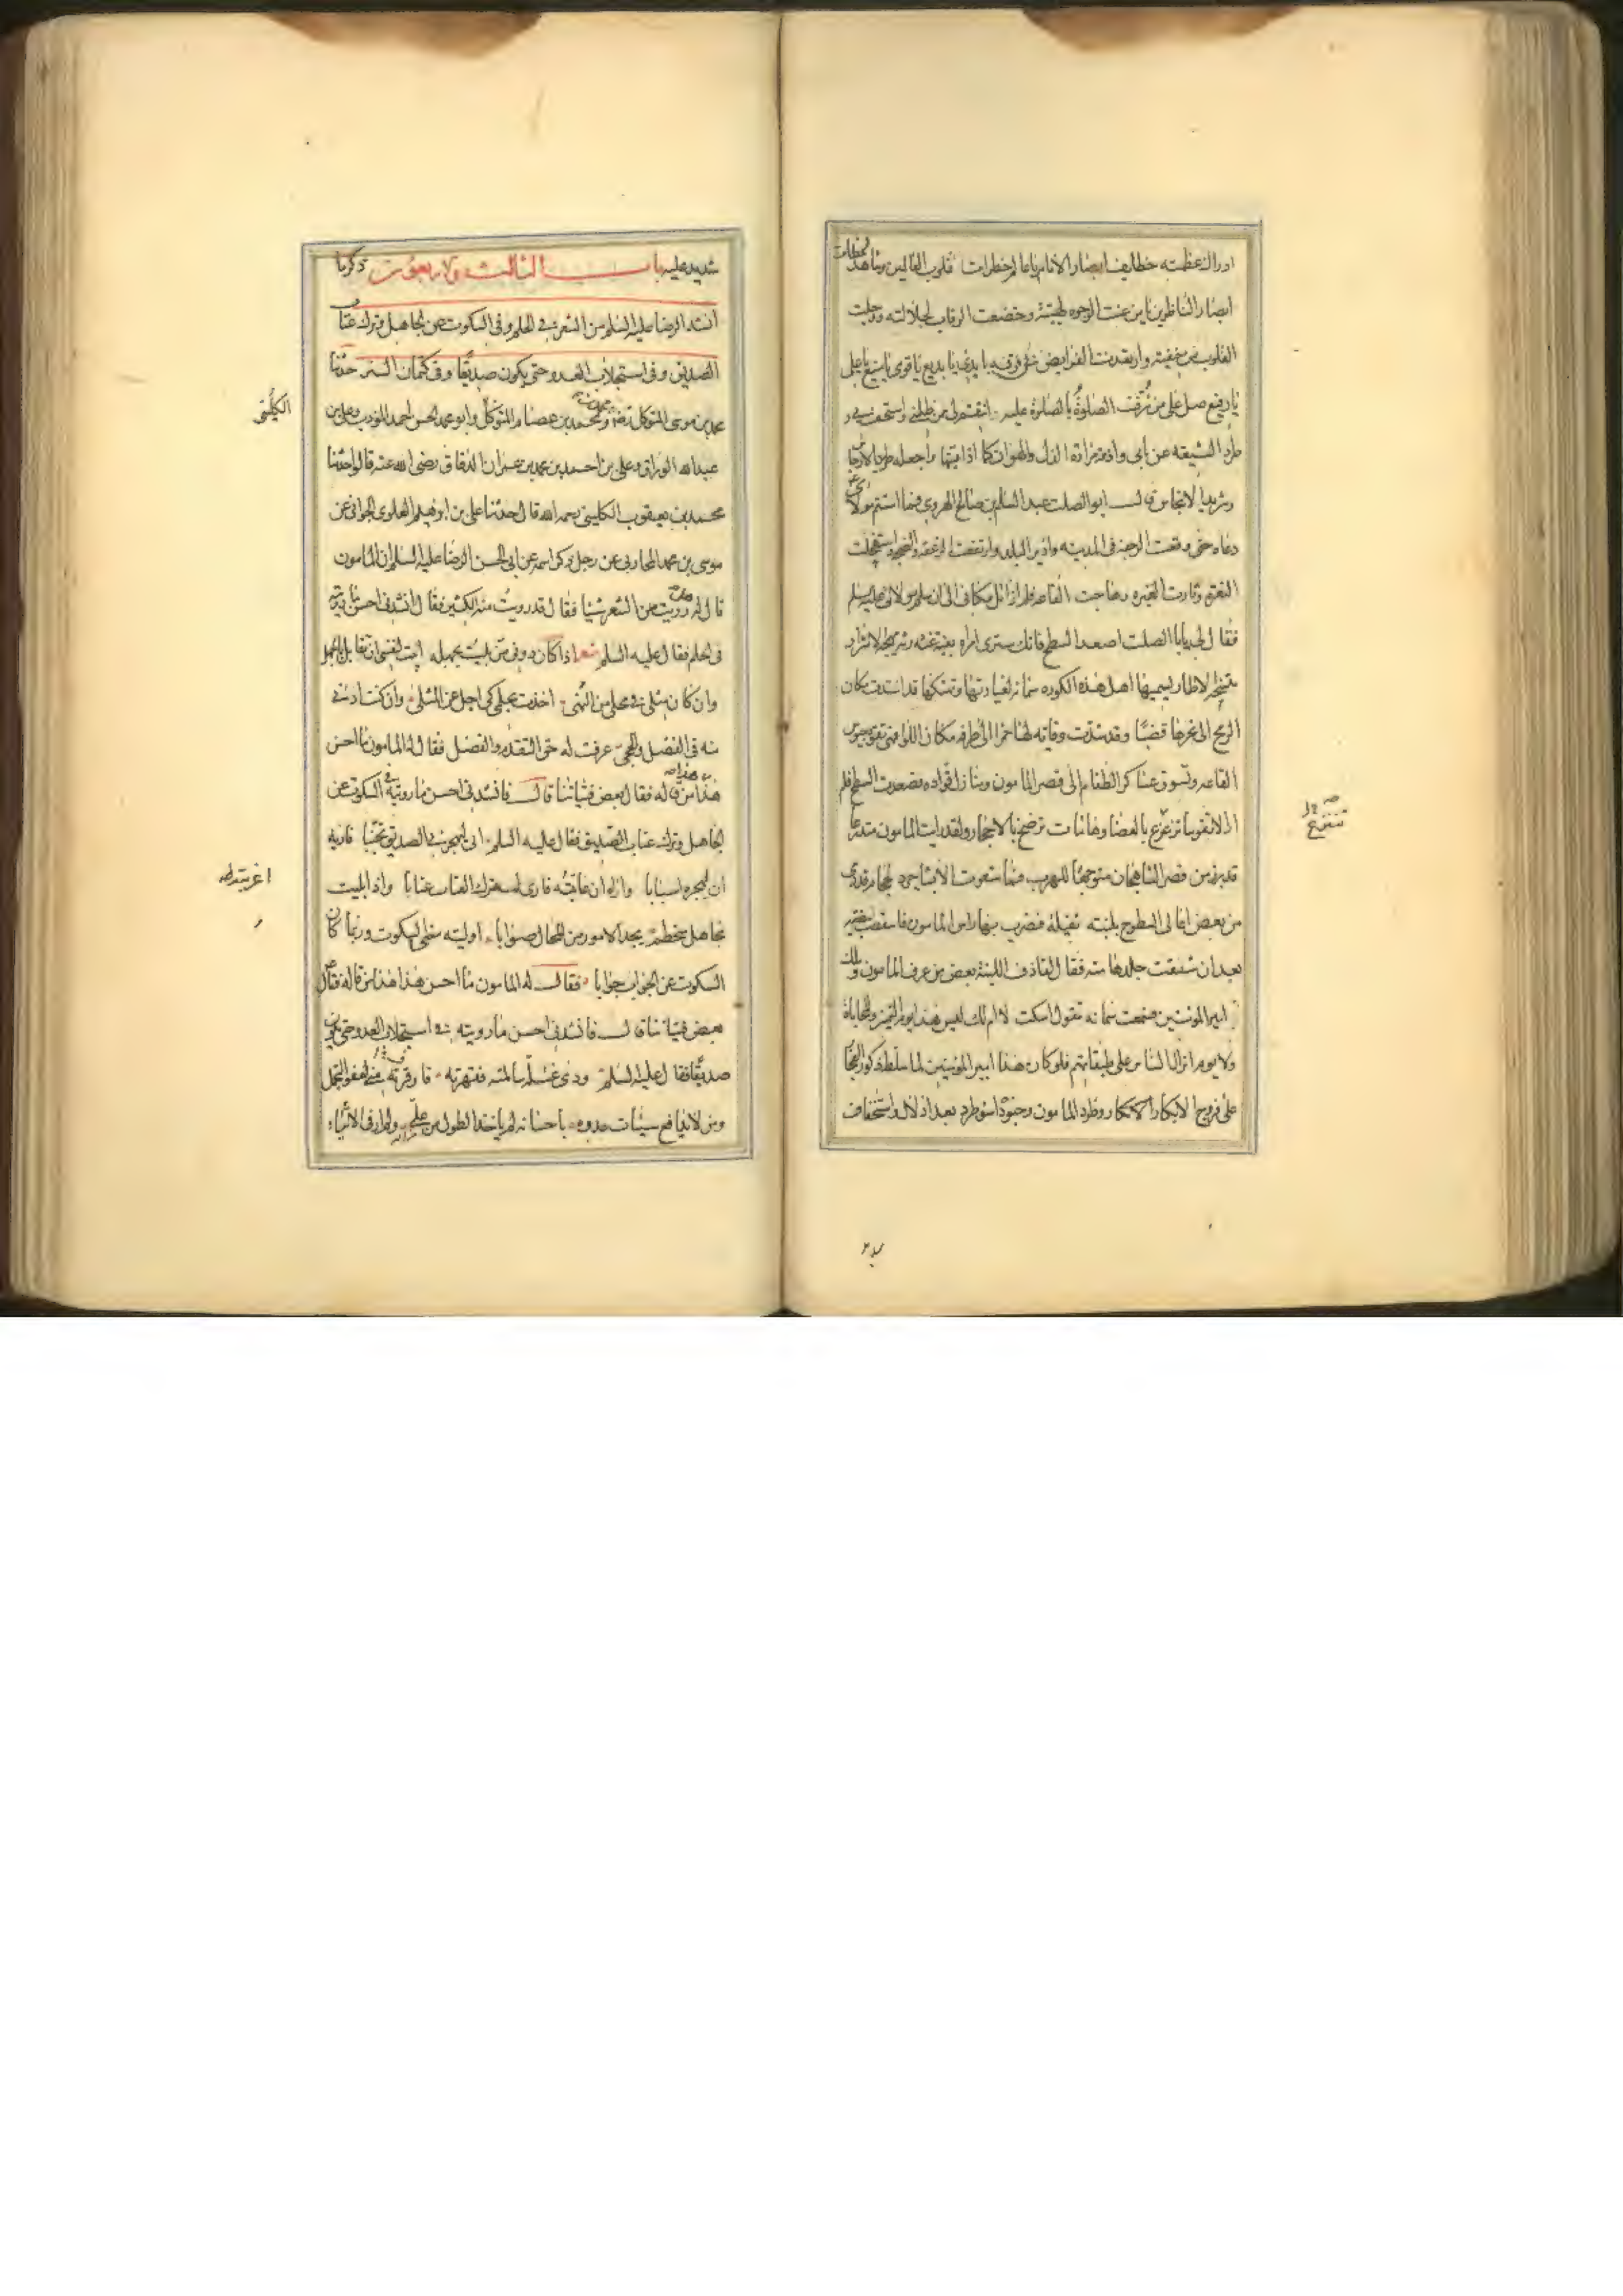 ادراك عظمته خطايف ابصار الانام يا عالم خطرات قلوب العالمين وشاهد لحظات
ابصار الناظرين يا من عنت الوجوه لهيبته وخضعت الرقاب لجلالته ووجلت
القلوب من خيفته وارتعدت الفرايص من فرقه يا بدئ يا بديع يا قوى يا منيع يا على
يا رفيع صل على من شرفت الصلوة بالصلوة عليه وانتقم لى ممن ظلمنى واستخف بى و
طرد الشيعة عن بابى واذقه مرارة الذل والهوان كما اذاقنيها واجعله طريد الارجاس
وشريد الانجاس قال ابو الصلت عبد السلام بن صالح الهروى فما استتم مولاى
دعاه حتى وقعت الرجفة فى المدينة وارتج البلد وارتفعت الزعقة والضجة واستفحلت
النعرة وثارت الغبرة وهاجت القاعة فلم ازايل مكانى الى ان سلم مولاى عليه السلم
فقال لى يا با الصلت اصعد السطح فانك سترى امراه بغية غثه رثه
متسخة الاطمار يسميها اهل هذه الكوره سمانه لغباوتها وتهتكها قد اسندت مكان
الرمح الى نحرها قصبا وقد شدت وقاية لها حمرا الى طرفه مكان اللوا فهى تقود جيوش
القاعة وتسوق عساكر الطغام الى قصر المامون ومنازل قواده فصعدت السطح فلم
ار الا نفوسا تزعزع بالعصا وهامات ترضخ بالاحجار ولقد رايت المامون متدرعا
قد برز من قصر الشاهجان متوجها للهرب فما شعرت الا بشاجرد الحجام قد رمى
من بعض اعالى السطوح بلبنة ثقيلة فضرب بها راس المامون فاسقطت بيضته
بعد ان شقت جلد هامته فقال لقاذف اللبنة بعض من عرف المامون ويلك
امير المومنين فسمعت سمانه تقول اسكت لا ام لك ليس هذا يوم التميز والمحاباة
ولا يوم انزال الناس على طبقاتهم فلو كان هذا امير المومنين لما سلط ذكور الفجار
على فروج الابكار وطرد المامون وجنوده اسوء طرد بعد اذلال واستخفاف
شديد عليه باب الثالث والاربعون ذكر ما
انشد الرضا عليه السلم من الشعر فى الحلم وفى السكوت عن الجاهل وترك عتاب
الصديق وفى استجلاب العدو حتى يكون صديقا وفى كتمان السر حدثنا
محمد بن موسى المتوكل رضه ومحمد بن محمد بن عصام وابو محمد الحسن احمد المودب وعلى بن
عبد الله الوراق وعلى بن احمد بن محمد بن عمران الدقاق رضى الله عنه قالوا حدثنا
محمد بن يعقوب الكلينى رحمه الله قال حدثنا على بن ابرهيم العلوى الجوانى عن
موسى بن محمد المحاربى عن رجل ذكر اسمه عن ابى الحسن الرضا عليه السلم ان المامون
قال له هل رويت من الشعر شيا فقال قد رويت منه الكثير فقال انشدنى احسن ما رويته
فى الحلم فقال عليه السلم شعر اذا كان دونى من بليت بجهله ابيت لنفسى ان تقابل بالجهل
وان كان مثلى فى محلى من النهى اخذت بحلمى كى اجل عن المثل وان كنت ادنى
منه فى الفضل والحجى عرفت له حق التقدم والفضل فقال له المامون ما احسن
هذا من قاله فقال بعض فتياننا قال فانشدنى احسن ما رويته فى السكوت عن
الجاهل وترك عتاب الصديق فقال عليه السلم انى ليهجرنى الصديق تجنبا فاريه
ان لهجره اسبابا واراه ان عاتبته فارى له ترك العتاب عتابا واذا بليت
بجاهل متحكم يجد الامور من المحال صوابا اوليته منى السكوت وربما كان
السكوت عن الجواب جوابا فقال له المامون ما احسن هذا هذا من قاله فقال
بعض فتياننا قال فانشدنى احسن ما رويته فى استجلاب العدو حتى يكون
صديقا فقال عليه السلم وذى غلة سالمته فقهرته فاوقرته منى لعفو التجمل
ومن لا يدافع سيئات عدوه باحسانه لم ياخذ الطول من عل ولم ار فى الاشياء
الكلينى
اغريته